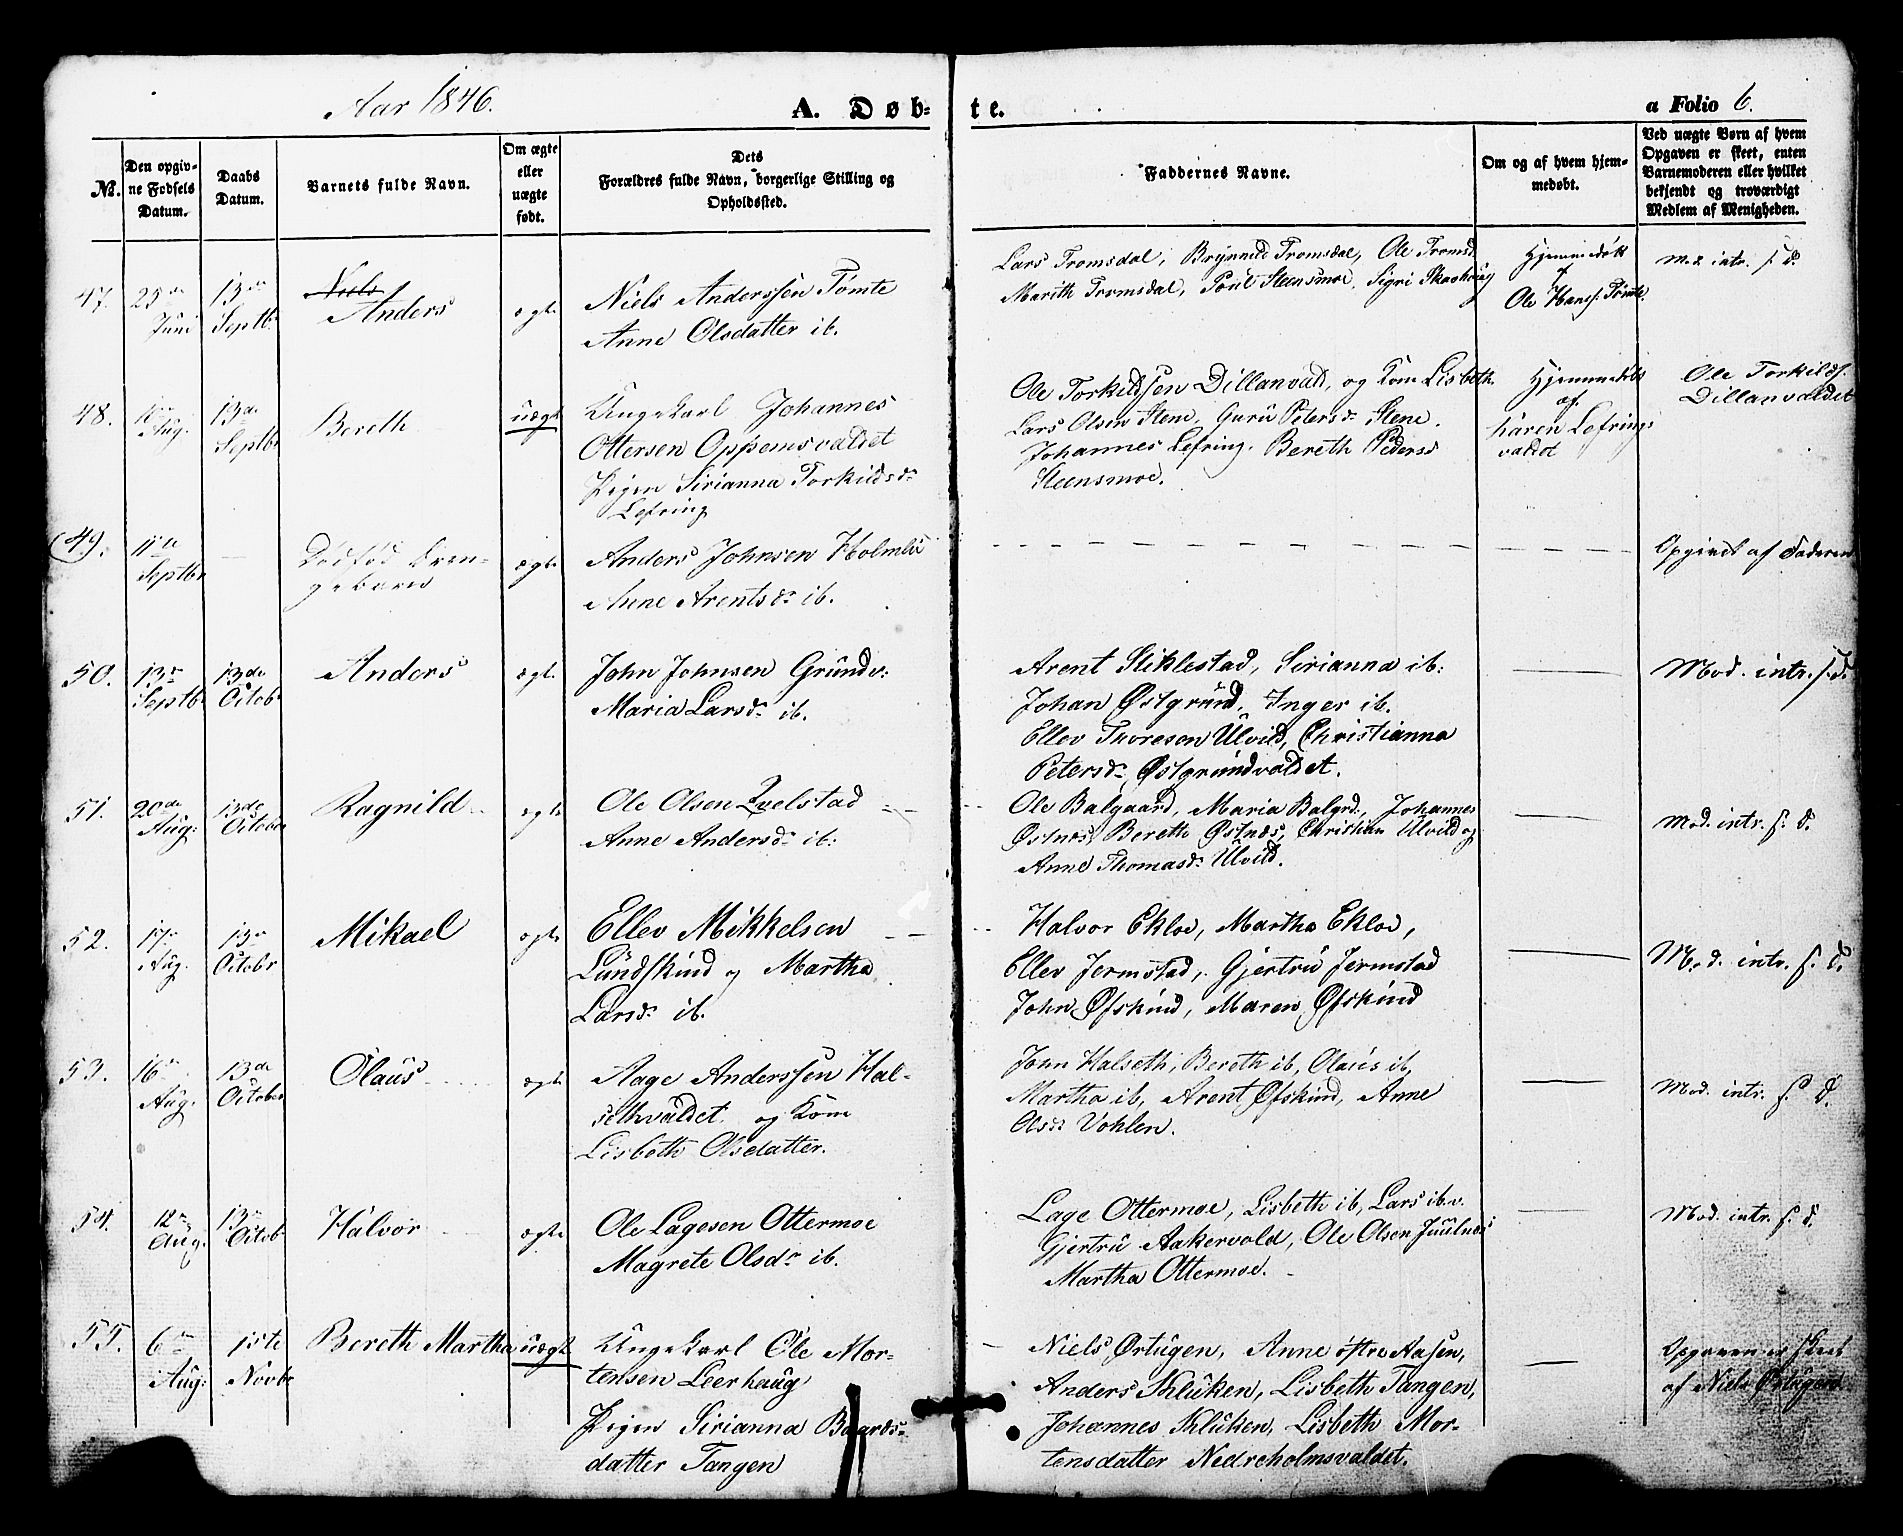 Aar 1846. A. Døb- te. a Folio 6.
No. Den opgiv- ne Fødsels Datum. Daabs Datum. Barnets fulde Navn. Om ægte eller uægte født. Dets Forældres fulde Navn, borgerlige Stilling og Opholdssted. Faddernes Navne. Om og af hvem hjem- medøbt. Ved uægte Børn af hvem Opgaven er skeet, enten Barnemoderen eller hvilket bekjendt og troværdigt Medlem af Menigheden.
47. 25de Juni 13de Septbr Niels Anders ægte
Niels Anderssen Tømte
Anne Olsdatter ib.
Lars Tromsdal, Brynnild Tromsdal, Ole Tromsd
Marith Tromsdal, Poul Steensmoe, Sigri Skavhoug
Hjemmedøbt
af
Ole Hansf: Tømte.
M. d. intr. f. d.
48. Aug. 13de Septbr Bereth uægte
Ungekarl Johannes
Ottersen Oppemsvaldet
Pigen Sirianna Torkildsdr
Lefring
Ole Torkildssen Dillanvald, og Kone Lisbeth
Lars Olsen Stene, Guru Petersdr Stene.
Johannes Lefring. Bereth Pedersd
Steensmoe.
Hjemmedøbt
af
Karen Lefrings
valdet
Ole Torkilds.
Dillanvaldet
(49). 11te Septbr Dødfød Dren-
gebarn ægte
Anders Johnsen Holmli
Anne Arentsdr ib.
Opgivet af Faderen
50. 13de Septbr 13de Octob Anders ægte
John Johnsen Grundv:
Maria Larsdr ib.
Arent Stiklestad, Sirianna ib:
Johan Østgrund, Inger ib.
Ellev Thoresen Ulvild, Christianna
Petersdr Østgrundvaldet.
Mod. intr. f. d.
51. 20de Aug: 13de October Ragnild ægte
Ole Olsen Qvelstad
Anne Andersdr ib:
Ole Balgaard, Maria Balgrd., Johannes
Østnes, Bereth Østnæs, Christian Ulvild og
Anne Thomasdr Ulvild.
Mod. intr. f. d.
52. 17de Aug. 13de Octobr Mikael ægte
Ellev Mikkelsen
Lundskind og Martha
Larsdr ib.
Halvor Ekloe, Martha Ekloe,
Ellev Jermstad, Gjertru Jermstad
John Øfskind, Maren Øfskind
Mod. intr. f. d.
53. 16de Aug. 13de October Olaus ægte
Aage Anderssen Hal-
sethvaldet og Kone
Lisbeth Olsdatter.
John Halseth, Bereth ib, Olaus ib,
Martha ib, Arent Øfskind, Anne
Olsdr Vohlen.
Mod. intr. f. d.
54. 12te Aug. 13de Octob Halvor ægte
Ole Lagesen Ottermoe
Magrete Olsdr ib.
Lage Ottermoe, Lisbeth ib, Lars ib. v.
Gjertru Aakervold, Ole Olsen Juulnes
Martha Ottermoe.
Mod. intr. f. d.
55. 6te Aug: 1ste Novbr Bereth Martha uægte
Ungekarl Ole Mor-
tensen Leerhaug
Pigen Sirianna Baards-
datter Tangen
Niels Ørtugen, Anne østre Aasen,
Anders Kluken, Lisbeth Tangen,
Johannes Kluken, Lisbeth Mor-
tensdatter Nedreholmsvaldet.
Opgaven er skeet
af Niels Ørtugen